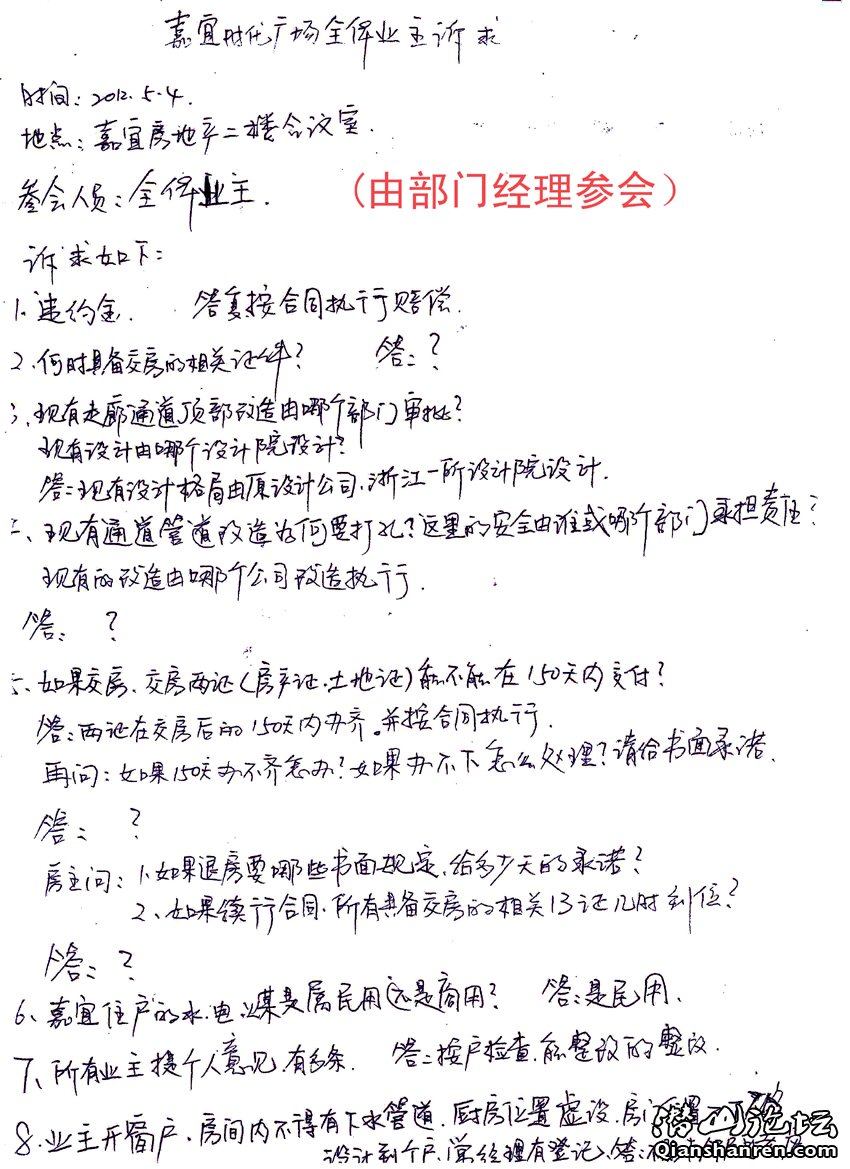 嘉宜时代广场全体业主诉求
时间：2012.5.4.
地点：嘉宜房地产二楼会议室.
参会人员：全体业主. （由部门经理参会）
诉求如下：
1.违约金. 答复按合同执行赔偿.
2、何时具备交房的相关证件？ 答：？
3、现有走廊通道顶部改造由哪个部门审批？
现有设计由哪个设计院设计？
答：现有设计格局由原设计公司.浙江一所设计院设计.
现有通道管道改造为何要打孔？这里的安全由谁或哪个部门承担责任？
现有的改造由哪个公司改造执行.
答： ？
、如果交房、交房两证（房产证.土地证）能不能在150天内交付？
答：两证在交房后的150天内办齐.并按合同执行.
再问：如果150天办不齐怎办？如果办不下怎么处理？请给书面承诺.
答： ？
房主问：1.如果退房要哪些书面规定、给多少天的承诺？
2、如果续行合同.所有具备交房的相关13证几时到位？
答：？
6、嘉宜住户的水.电.煤是属民用还是商用？ 答：是民用.
7、所有业主提个人意见.有多条. 答：按户检查.能整改的整改.
8.业主开窗户、房间内不得有下水管道.厨房位置虚设.房
设计到个户.常经理有登记、答：
潜山论坛
Qianshanren.com